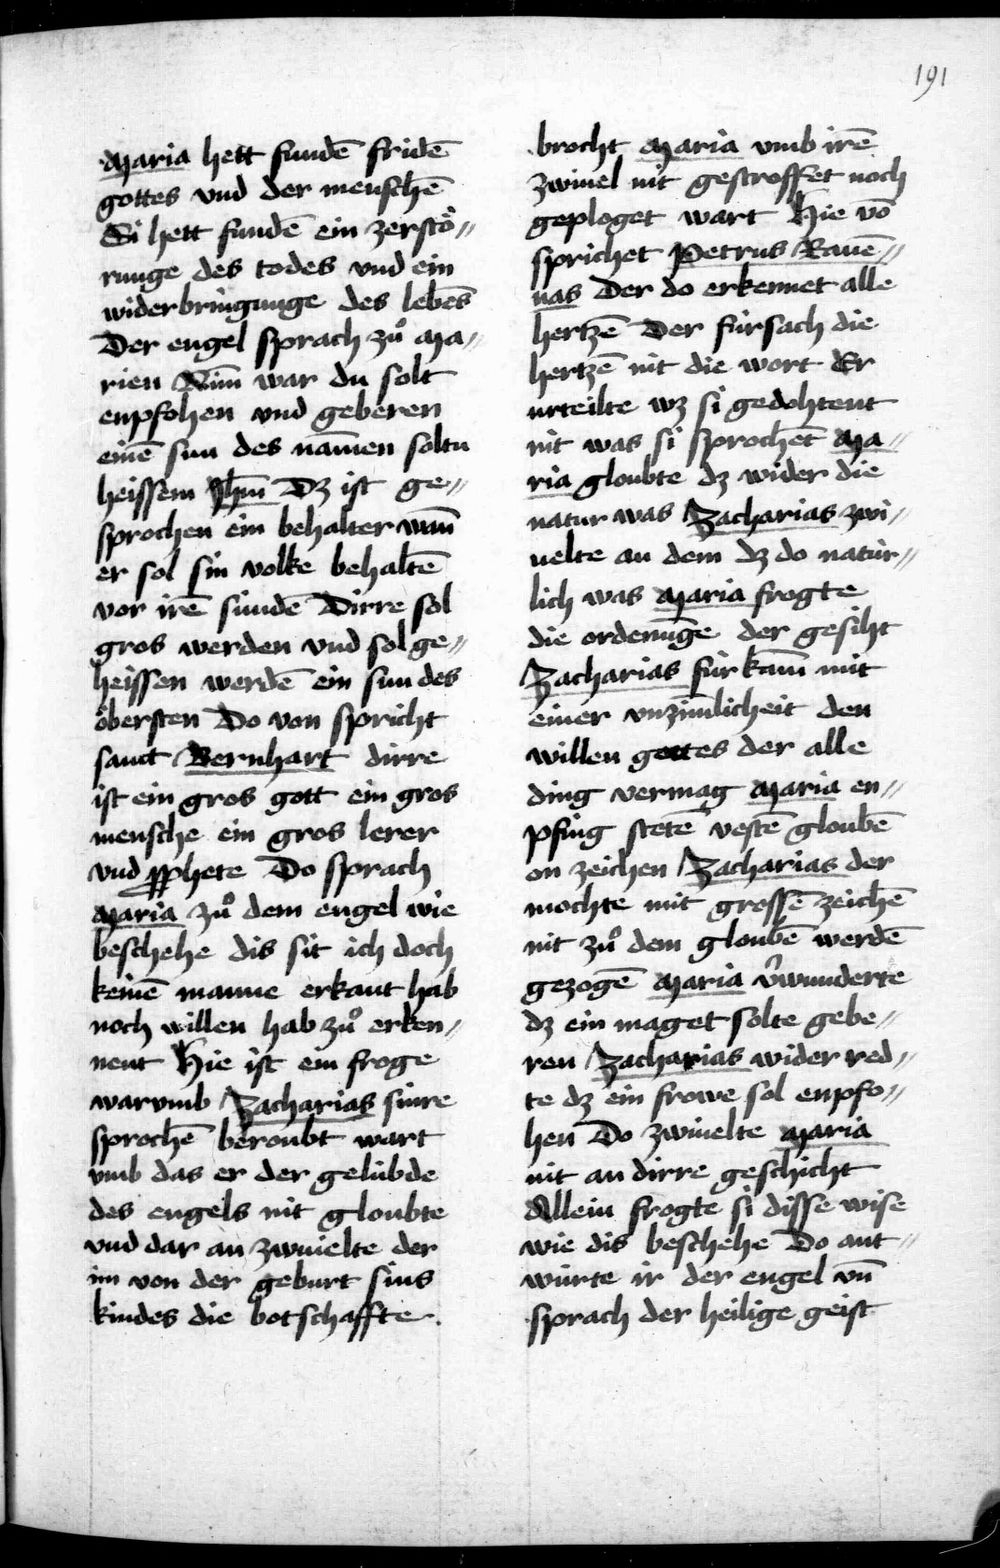 191
Maria hett fundē fridē
gottes vnd der menschē
Si hett fundē ein zerstoͤ〟
runge des todes vnd ein
widerbringunge des lebēs
Der engel sprach zuͦ Ma〟
rien Nim̄ war du solt
enpfohen vnd geberen
einē sun des nam̄en soltu
heissem Jhm̄ Dz ist ge〟
sprochen ein behalter wan̄
er sol sin volke behaltē
vor irē sündē Dirre sol
gros werden vnd sol ge〟
heissen werdē ein sun des
öbersten Do von spricht
sanct Bernhart dirre
ist ein gros gott ein gros
mensche ein gros lerer
vnd ꝓphete Do sprach
Maria zuͦ dem engel wie
beschehe dis sit ich doch
keinē manne erkant hab
noch willen hab zuͦ erken〟
nent Hie ist ein froge
warvmb Zacharias sinre
sprochē beroubt wart
vmb das er der gelübde
des engels nit gloubte
vnd dar an zwiuelte der
im von der geburt sins
kindes die botschaffte
brocht Maria vmb irē
zwiuel nit gestroffet noch
geploget wart Hie vō
sprichet Petrus Rauē〟
nas Der do erkennet alle
hertzē Der fürsach die
hertzē nit die wort Er
urteilte wz si gedohtent
nit was si sprochēt Ma〟
ria gloubte dz wider die
natur was Zacharias zwi〟
uelte an dem dz do natür〟
lich was Maria frogte
die ordenūge der gesiht
Zacharias für kam̄ mit
einer vnzim̄licheit den
willen gottes der alle
ding vermag Maria en〟
pfing stetē vestē gloubē
on zeichen Zacharias der
mochte mit grossē zeichē
nit zuͦ dem gloubē werdē
gezogē Maria v̓wunderte
dz ein maget solte gebe〟
ren Zacharias wider red〟
te dz ein frowe sol enpfo〟
hen Do zwiuelte Maria
nit an dirre geschicht
Allein frogte si disse wise
wie dis beschehe Do ant〟
würte ir der engel vn̄
sprach der heilige geist